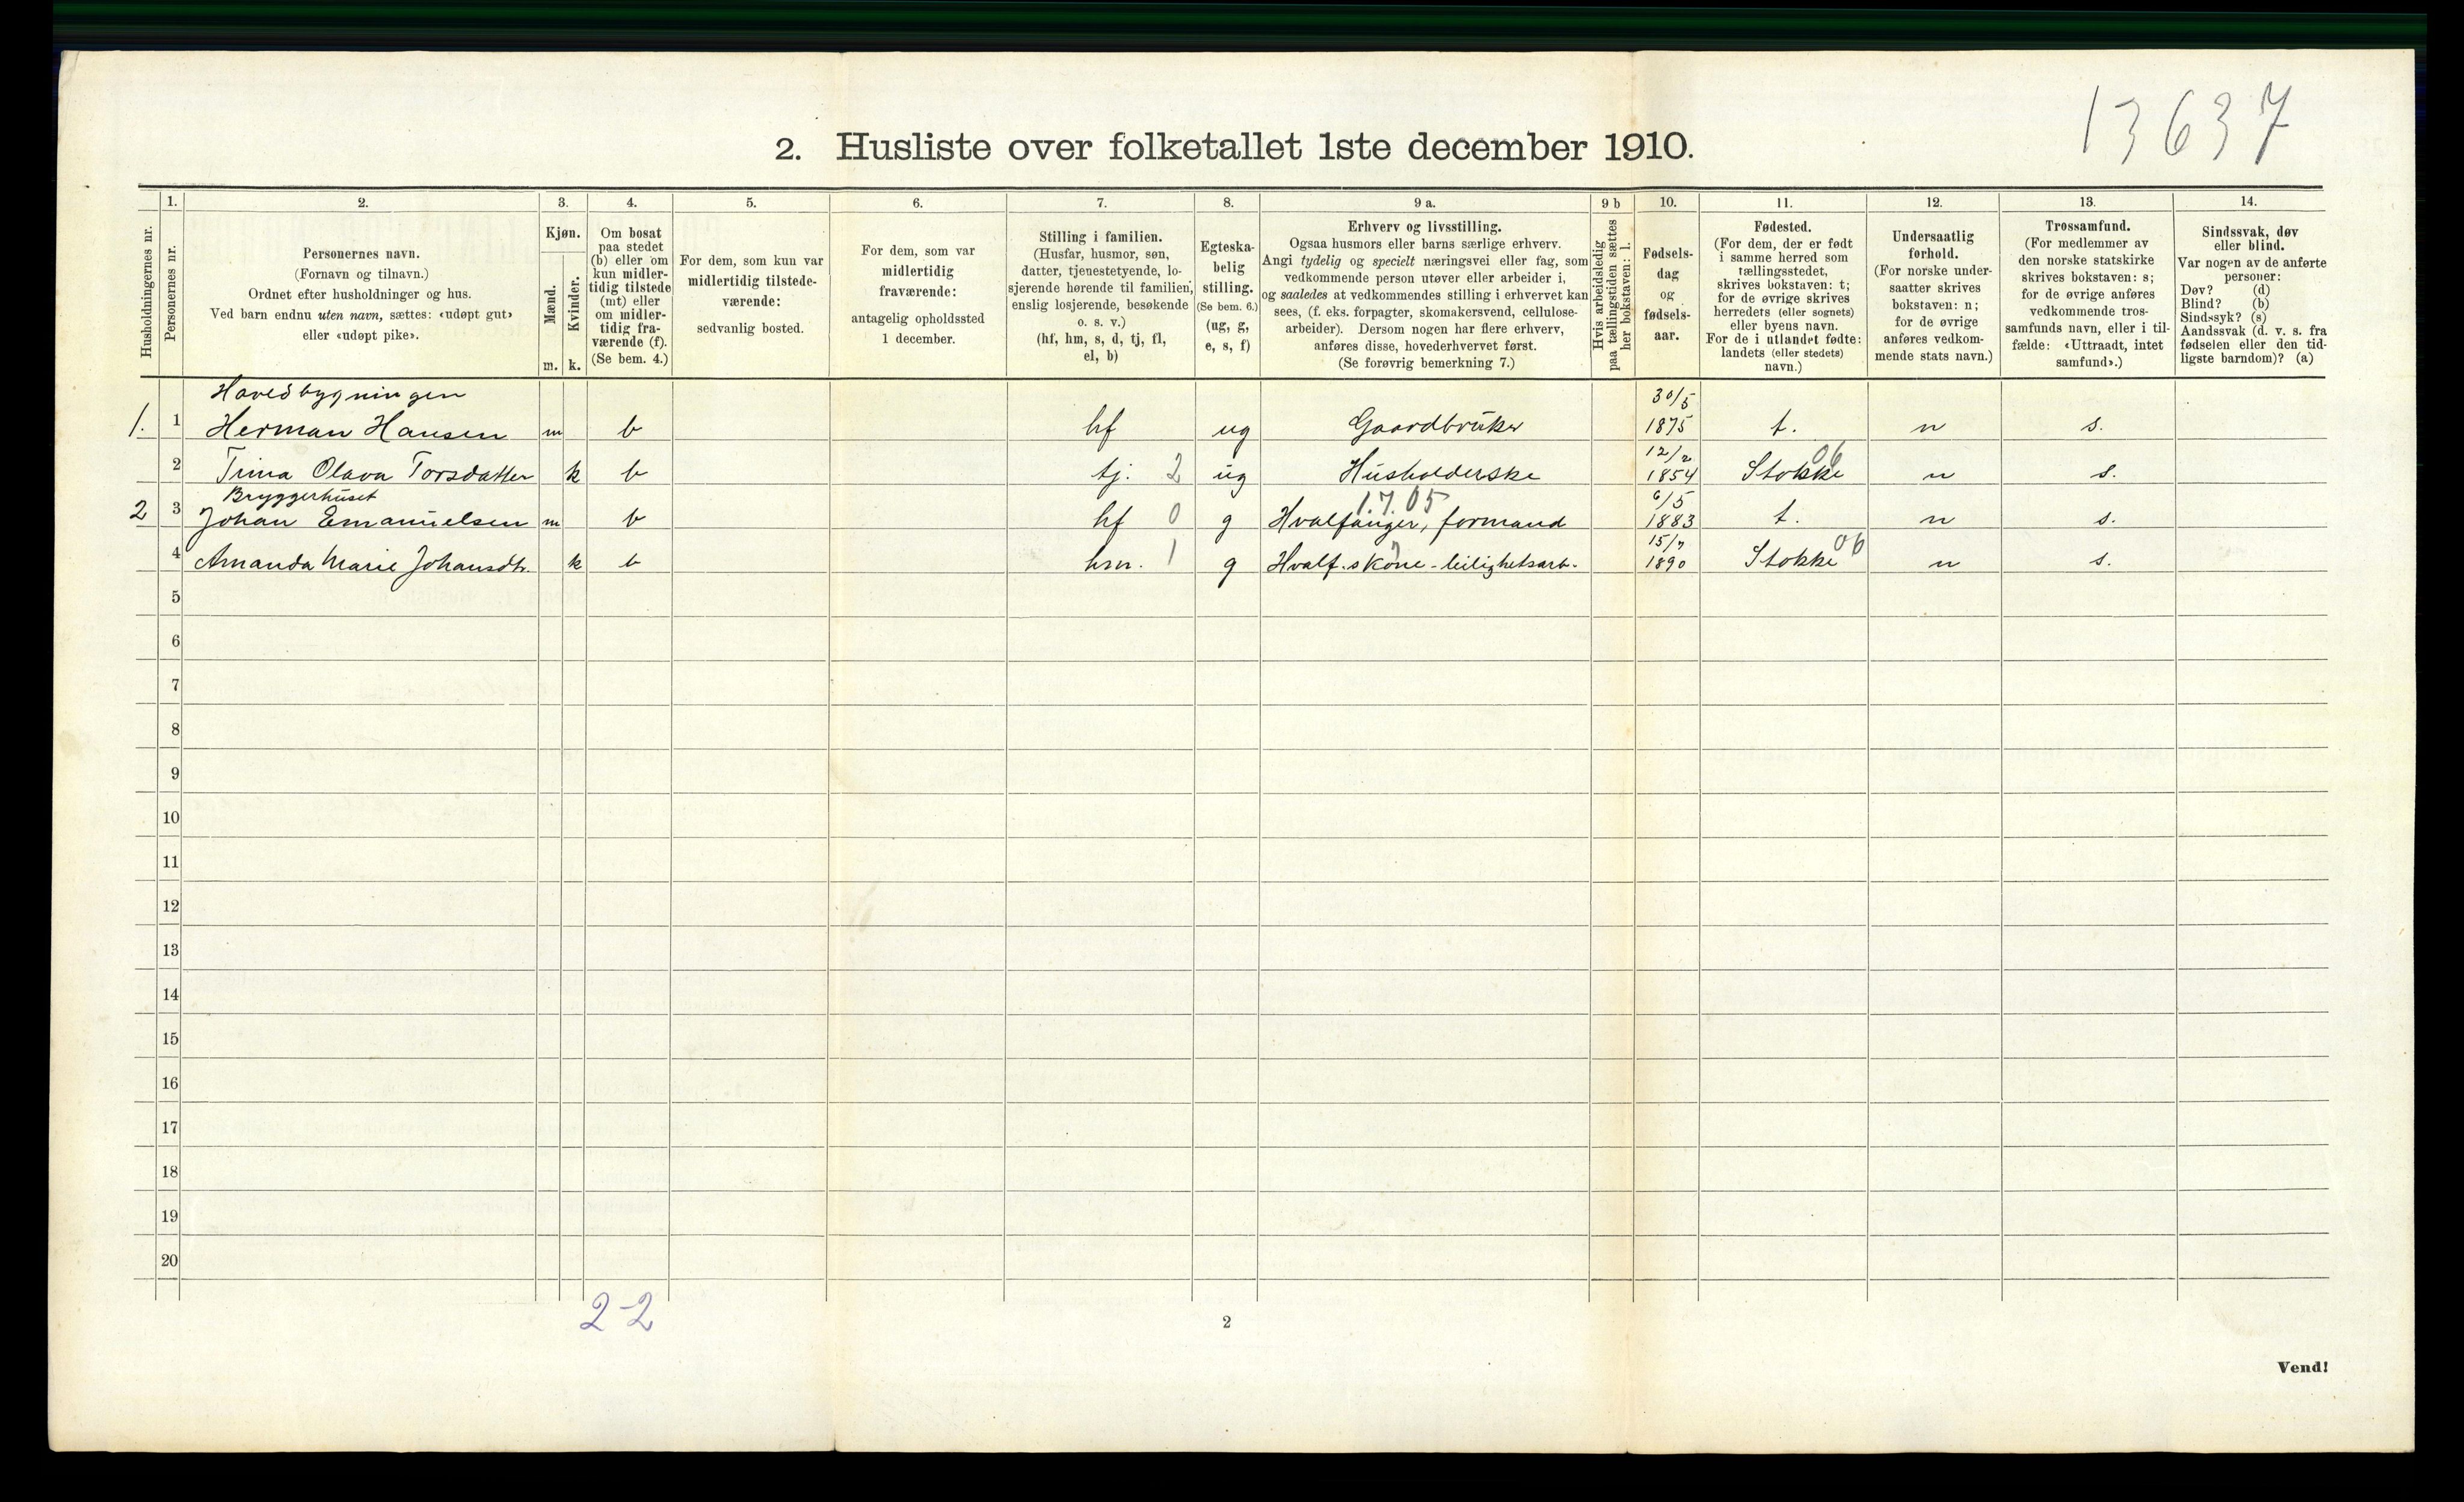 13637
2. Husliste over folketallet 1ste december 1910.
1. 2. 3. 4. 5. 6. 7. 8. 9 a. 9 b 10. 11. 12. 13. 14.
Husholdningernes nr.
Personernes nr.
Personernes navn.
(Fornavn og tilnavn.)
Ordnet efter husholdninger og hus.
Ved barn endnu uten navn, sættes: «udøpt gut»
eller «udøpt pike».
Kjøn.
Mænd.
Kvinder.
m. k.
Om bosat
paa stedet
(b) eller om
kun midler-
tidig tilstede
(mt) eller
om midler-
tidig fra-
værende (f).
(Se bem. 4.)
For dem, som kun var
midlertidig tilstede-
værende:
sedvanlig bosted.
For dem, som var
midlertidig
fraværende:
antagelig opholdssted
1 december.
Stilling i familien.
(Husfar, husmor, søn,
datter, tjenestetyende, lo-
sjerende hørende til familien,
enslig losjerende, besøkende
o. s. v.)
(hf, hm, s, d, tj, fl,
el, b)
Egteska-
belig
stilling.
(Se bem. 6.)
(ug, g,
e, s, f)
Erhverv og livsstilling.
Ogsaa husmors eller barns særlige erhverv.
Angi tydelig og specielt næringsvei eller fag, som
vedkommende person utøver eller arbeider i,
og saaledes at vedkommendes stilling i erhvervet kan
sees, (f. eks. forpagter, skomakersvend, cellulose-
arbeider). Dersom nogen har flere erhverv,
anføres disse, hovederhvervet først.
(Se forøvrig bemerkning 7.)
Hvis arbeidsledig
paa tællingstiden sættes
her bokstaven: l.
Fødsels-
dag
og
fødsels-
aar.
Fødested.
(For dem, der er født
i samme herred som
tællingsstedet,
skrives bokstaven: t;
for de øvrige skrives
herredets (eller sognets)
eller byens navn.
For de i utlandet fødte:
landets (eller stedets)
navn.)
Undersaatlig
forhold.
(For norske under-
saatter skrives
bokstaven: n;
for de øvrige
anføres vedkom-
mende stats navn.)
Trossamfund.
(For medlemmer av
den norske statskirke
skrives bokstaven: s;
for de øvrige anføres
vedkommende tros-
samfunds navn, eller i til-
fælde: «Uttraadt, intet
samfund».)
Sindssvak, døv
eller blind.
Var nogen av de anførte
personer:
Døv? (d)
Blind? (b)
Sindssyk? (s)
Aandssvak (d. v. s. fra
fødselen eller den tid-
ligste barndom)? (a)
Hovedbygningen 30/5
1. 1 Herman Hansen m b hf ug Gaardbruker 1875 t. n s.
12/2 06
2 Trina Olava Torsdatter k b tj. 2 ug Husholderske 1854 Stokke n s.
Bryggerhuset 1.7.05 6/5
2 3 Johan Emanuelsen m b hf 0 g Hvalfanger, formand 1883 t. n s.
15/7 06
4 Amanda Marie Johansdtr. k b hm. 1 g Hvalf.skone - leilighetsarb. 1890 Stokke n s.
5
6
7
8
9
10
11
12
13
14
15
16
17
18
19
20
2-2
2
Vend!